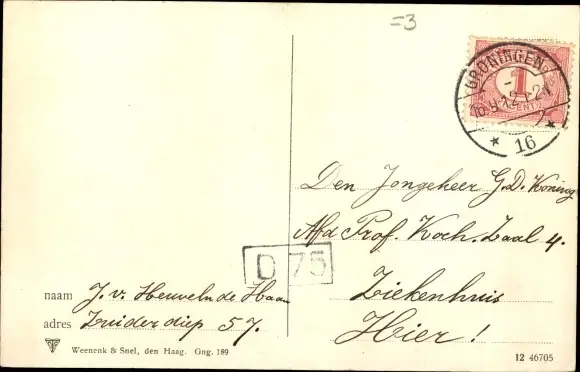 =3
GRONINGEN
1
CENT
16
Den Jongeheer G.D. Koning
Afd Prof. Koch. Zaal 4.
D 75
Ziekenhuis
Hier!
naam J. v. Heuveln de Haan
adres Zuiderdiep 57.
Weenenk & Snel, den Haag. Gng. 189
12 46705